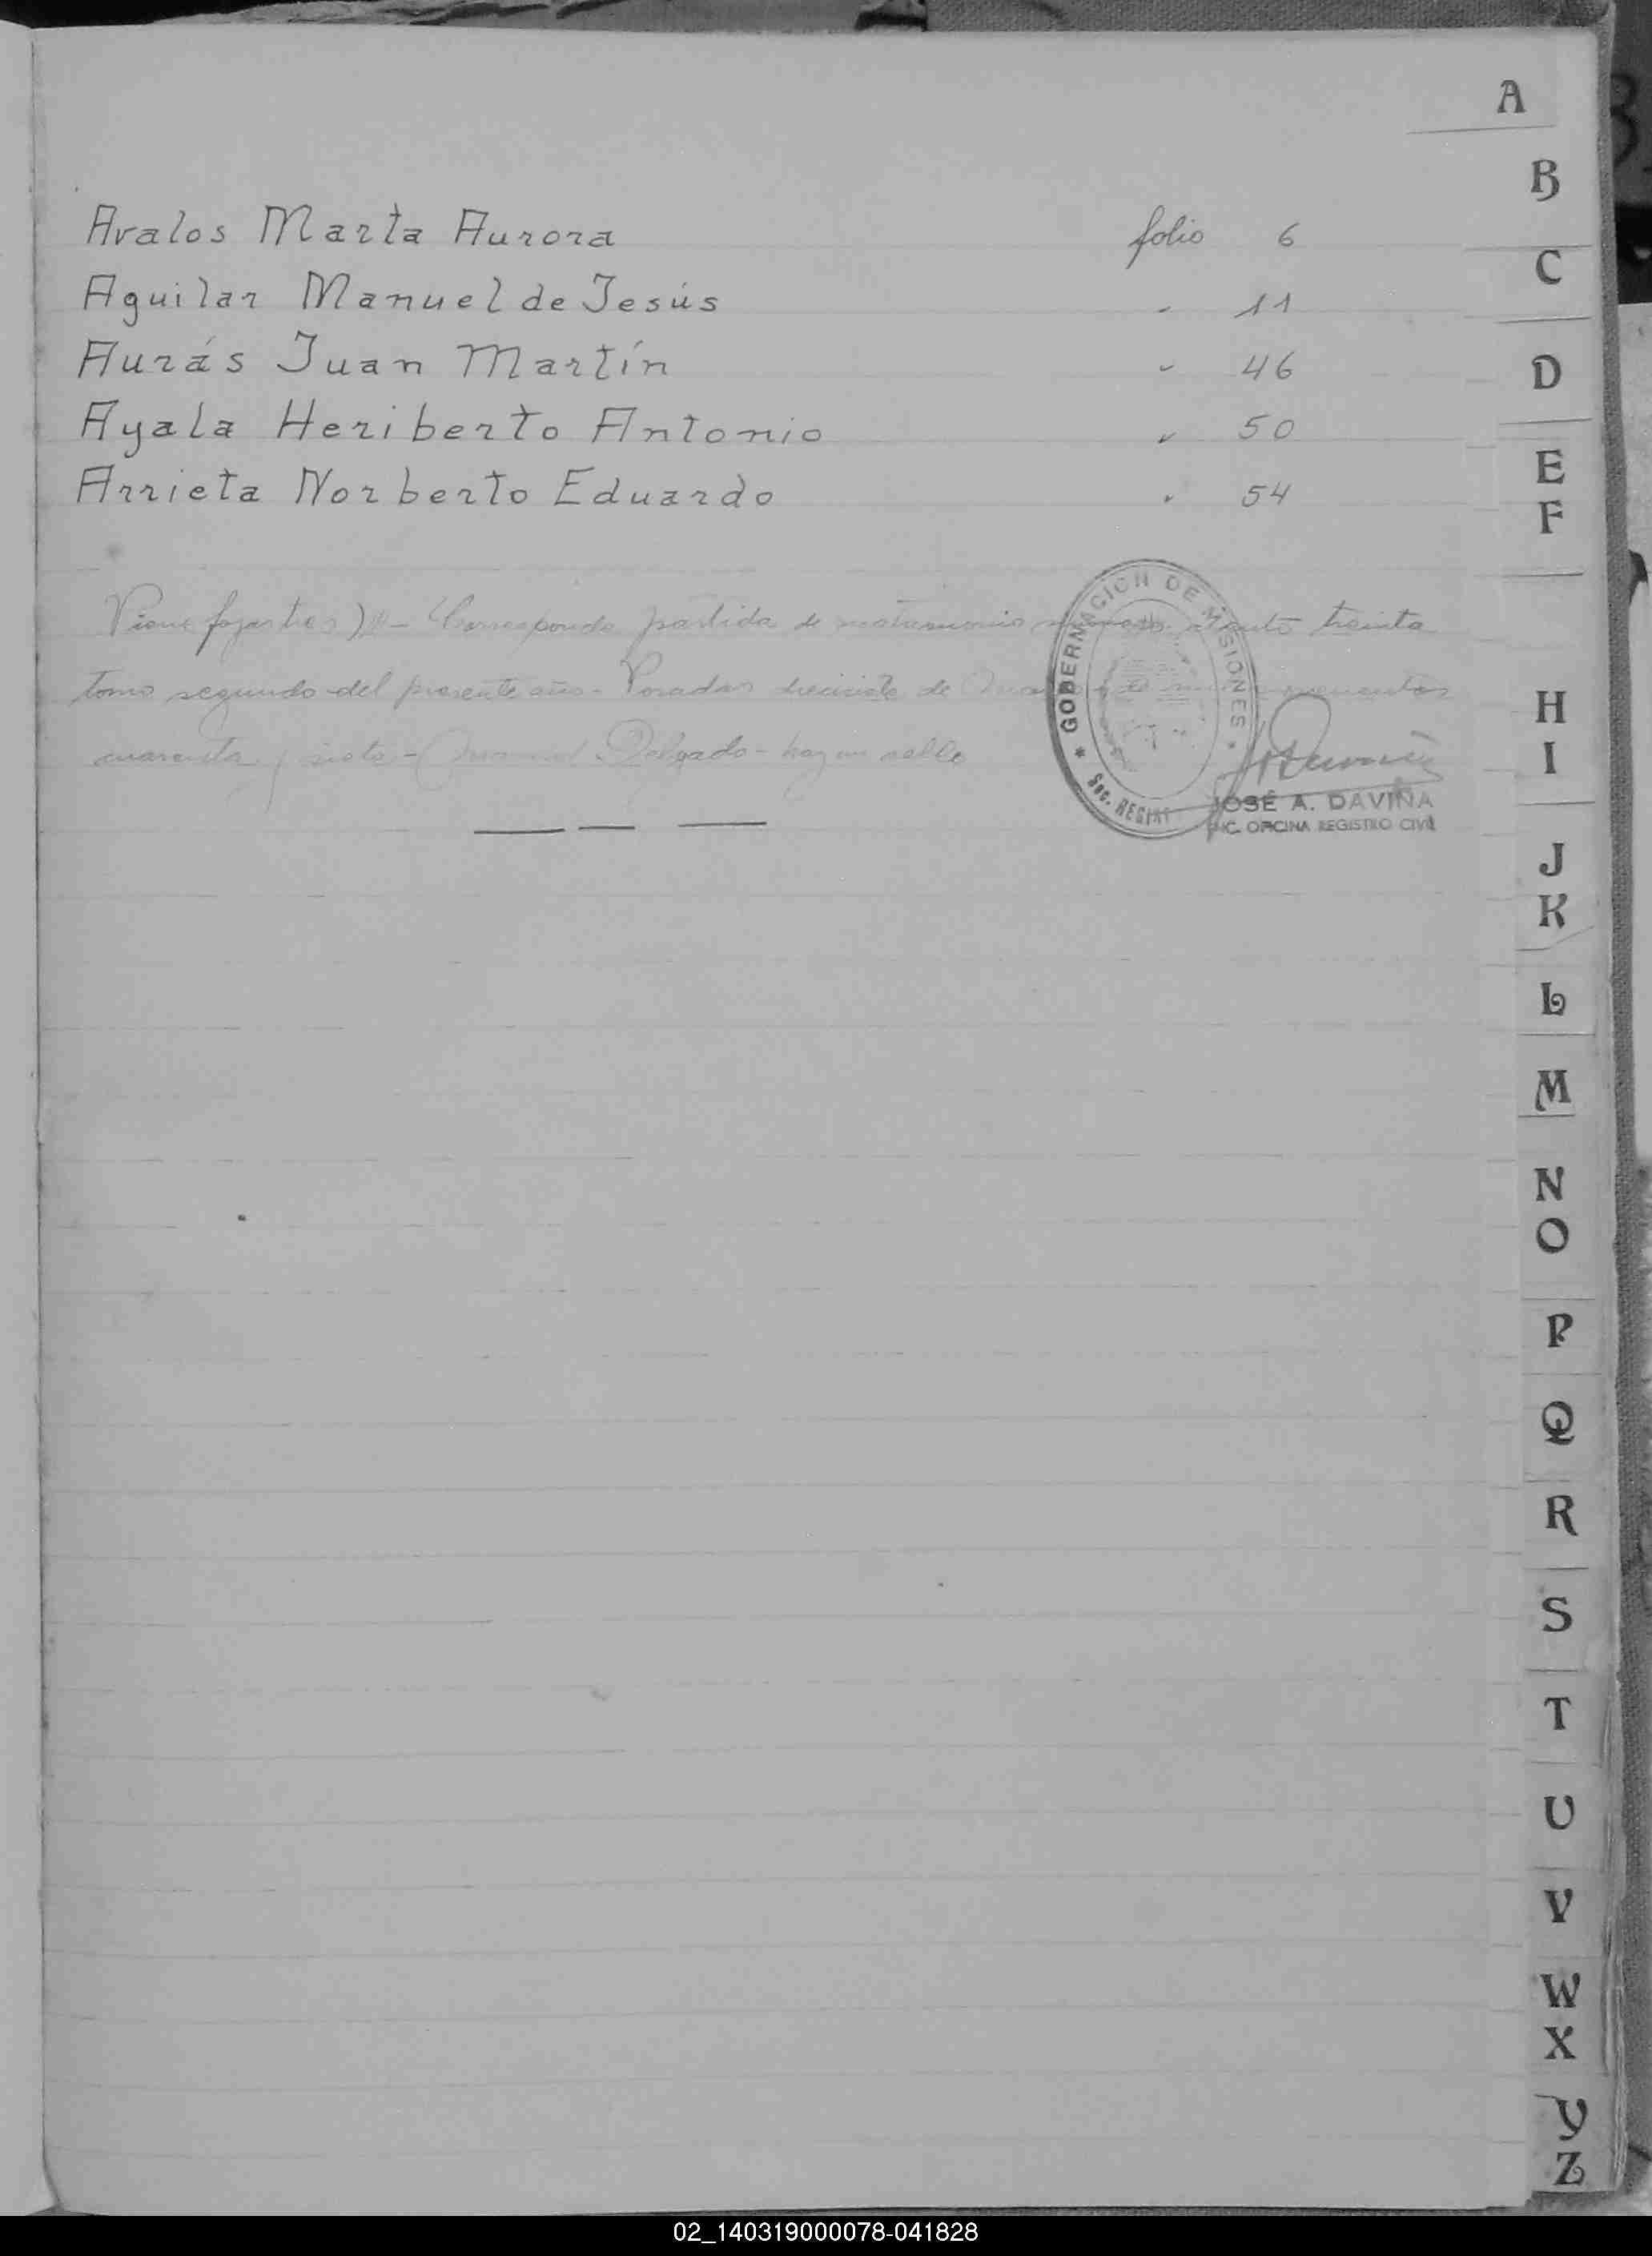 A
B
Avalos Marta Aurora folio 6
C
Aguilar Manuel de Jesús " 11
Aurás Juan Martín " 46
D
Ayala Heriberto Antonio " 50
E
Arrieta Norberto Eduardo " 54
F
Viene fojas tres) Corresponde partida de matrimonio treinta
tomo segundo del presente año - Posadas diecisiete de
cuarenta y siete - Delgado - hay un sello
GOBERNACION DE MISIONES
Sec. REGIST
JOSÉ A. DAVIÑA
ENC. OFICINA REGISTRO CIVIL
H
I
J
K
L
M
N
O
P
Q
R
S
T
U
V
W
X
Y
Z
02_140319000078-041828